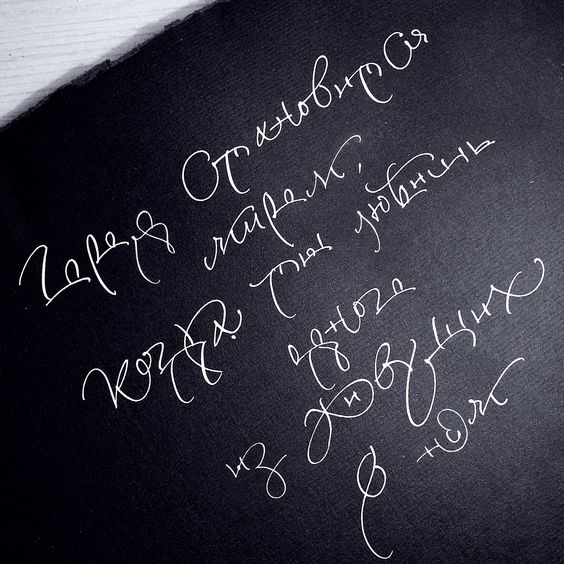 Город становится
миром,
когда ты любишь
одного
из живущих
в нём